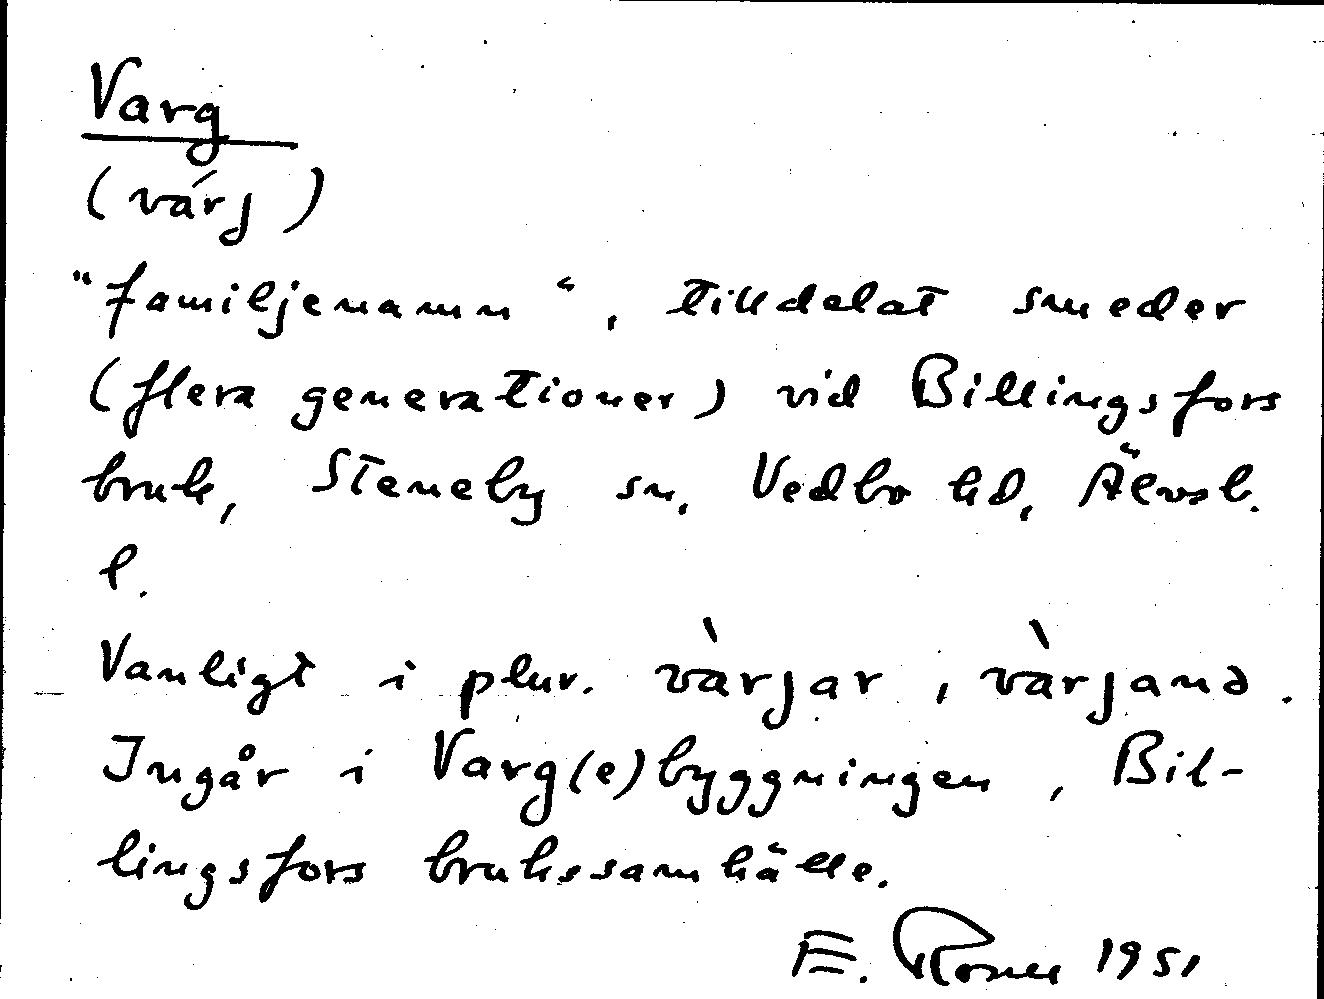 Varg
(várj)
"familjenamn", tilldelat smeder
(flera generationer) vid Billingsfors
bruk, Steneby sn, Vedbo hd, Älvsb.
l.
Vanligt i plur. vàrjar, vàrjanə.
Ingår i Varg(e)byggningen, Bil-
lingsfors brukssamhälle.
E. 1951